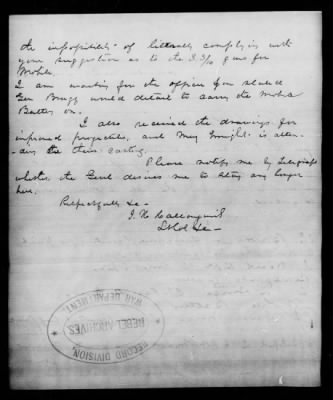 the impossibility of litterally complying with
your suggestion as to the 3.3/10 guns for
Mobile.
I am waiting for the officer you stated
Gen Bragg would detail to carry the Mobile
Battery on.
I also received the drawings for
improved projectiles, and Mr. Wright is atten-
ding to their casting.
Please notify me by Telegraph
whether the Genl desires me to stay any longer
here.
Respectfully &c
Lt Col &c
RECORD DIVISION,
REBEL ARCHIVES,
WAR DEPARTMENT.